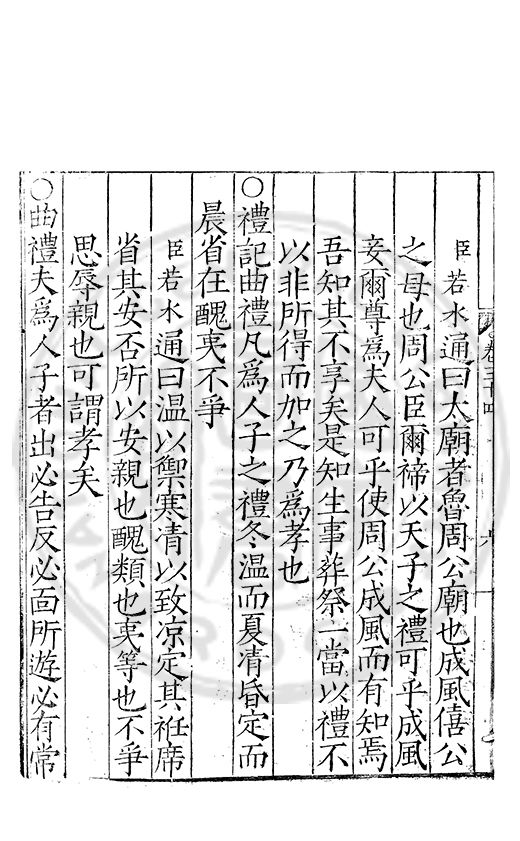 臣若水通曰太廟者魯周公廟也成風僖公
之母也周公臣爾禘以天子之禮可乎成風
妾爾尊爲夫人可乎使周公成風而有知焉
吾知其不享矣是知生事葬祭一當以禮不
以非所得而加之乃爲孝也
○禮記曲禮凡爲人子之禮冬温而夏凊昏定而
晨省在醜夷不爭
臣若水通曰温以禦寒凊以致凉定其袵席
省其安否所以安親也醜類也夷等也不爭
思辱親也可謂孝矣
○曲禮夫爲人子者出必告反必面所遊必有常